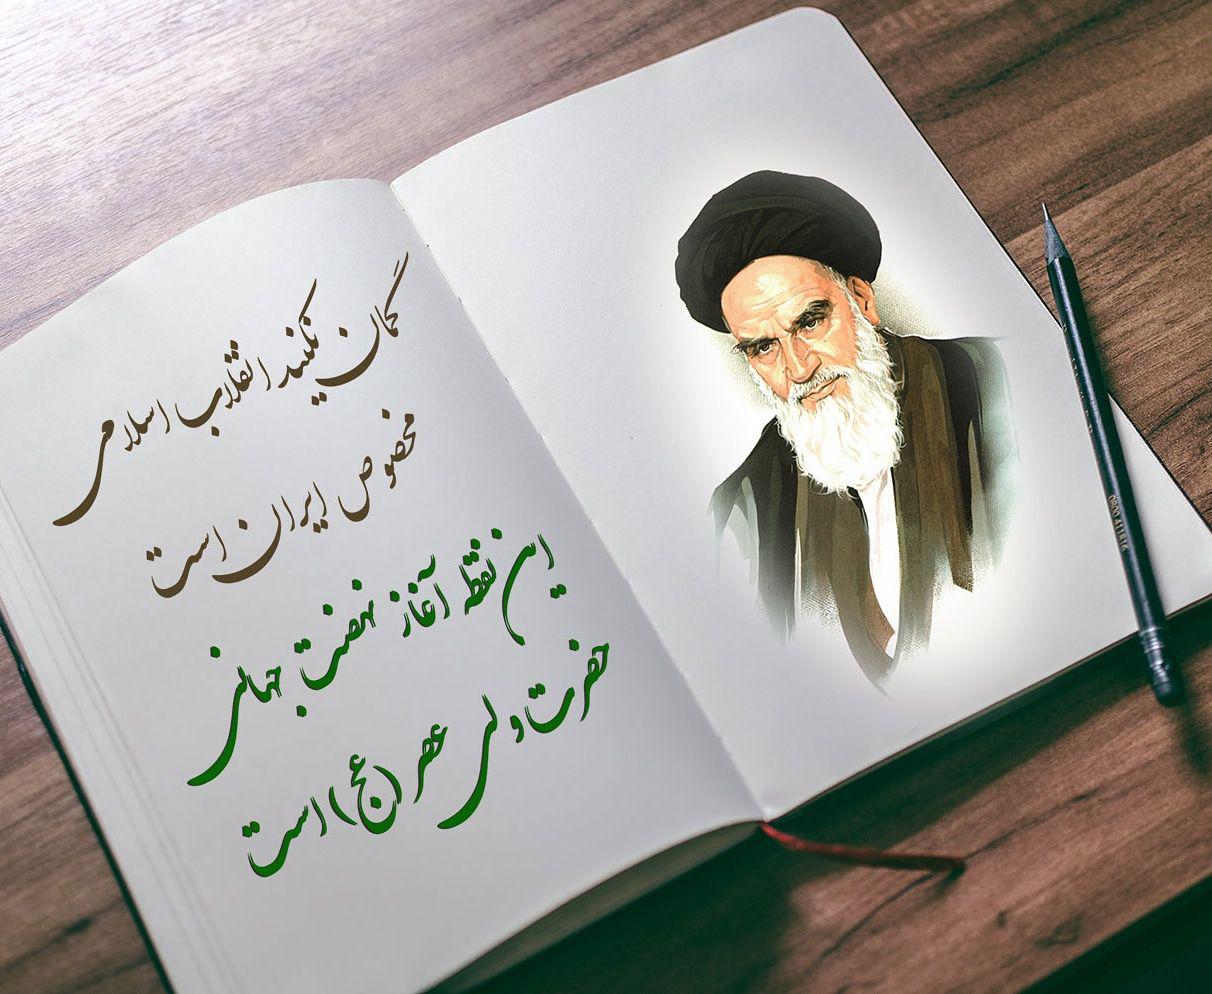 گمان نکنید انقلاب اسلامی
مخصوص ایران است
این نقطه آغاز نهضت جهانی
حضرت ولی عصر (عج) است
0800 411816